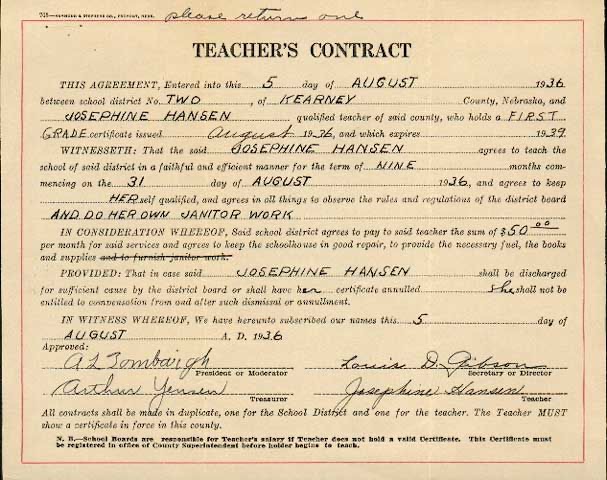 please return one
TEACHER'S CONTRACT
THIS AGREEMENT, Entered into this 5 day of AUGUST 1936
between school district No. TWO, of KEARNEY County, Nebraska, and
JOSEPHINE HANSEN qualified teacher of said county, who holds a FIRST
GRADE certificate issued August 1936, and which expires 1939
WITNESSETH: That the said JOSEPHINE HANSEN agrees to teach the
school of said district in a faithful and efficient manner for the term of NINE months com-
mencing on the 31 day of AUGUST 1936, and agrees to keep
HERself qualified, and agrees in all things to observe the rules and regulations of the district board
AND DO HER OWN JANITOR WORK
IN CONSIDERATION WHEREOF, Said school district agrees to pay to said teacher the sum of $50.00
per month for said services and agrees to keep the schoolhouse in good repair, to provide the necessary fuel, the books
and supplies and to furnish janitor work.
PROVIDED: That in case said JOSEPHINE HANSEN shall be discharged
for sufficient cause by the district board or shall have her certificate annulled she shall not be
entitled to compensation from and after such dismissal or annullment.
IN WITNESS WHEREOF, We have hereunto subscribed our names this 5 day of
AUGUST A. D. 1936
Approved:
A L Louis D. Gibson
President or Moderator Secretary or Director
Arthur Jensen Josephine Hansen
Treasurer Teacher
All contracts shall be made in duplicate, one for the School District and one for the teacher. The Teacher MUST
show a certificate in force in this county.
N. B.—School Boards are responsible for Teacher's salary if Teacher does not hold a valid Certificate. This Certificate must
be registered in office of County Superintendent before holder begins to teach.